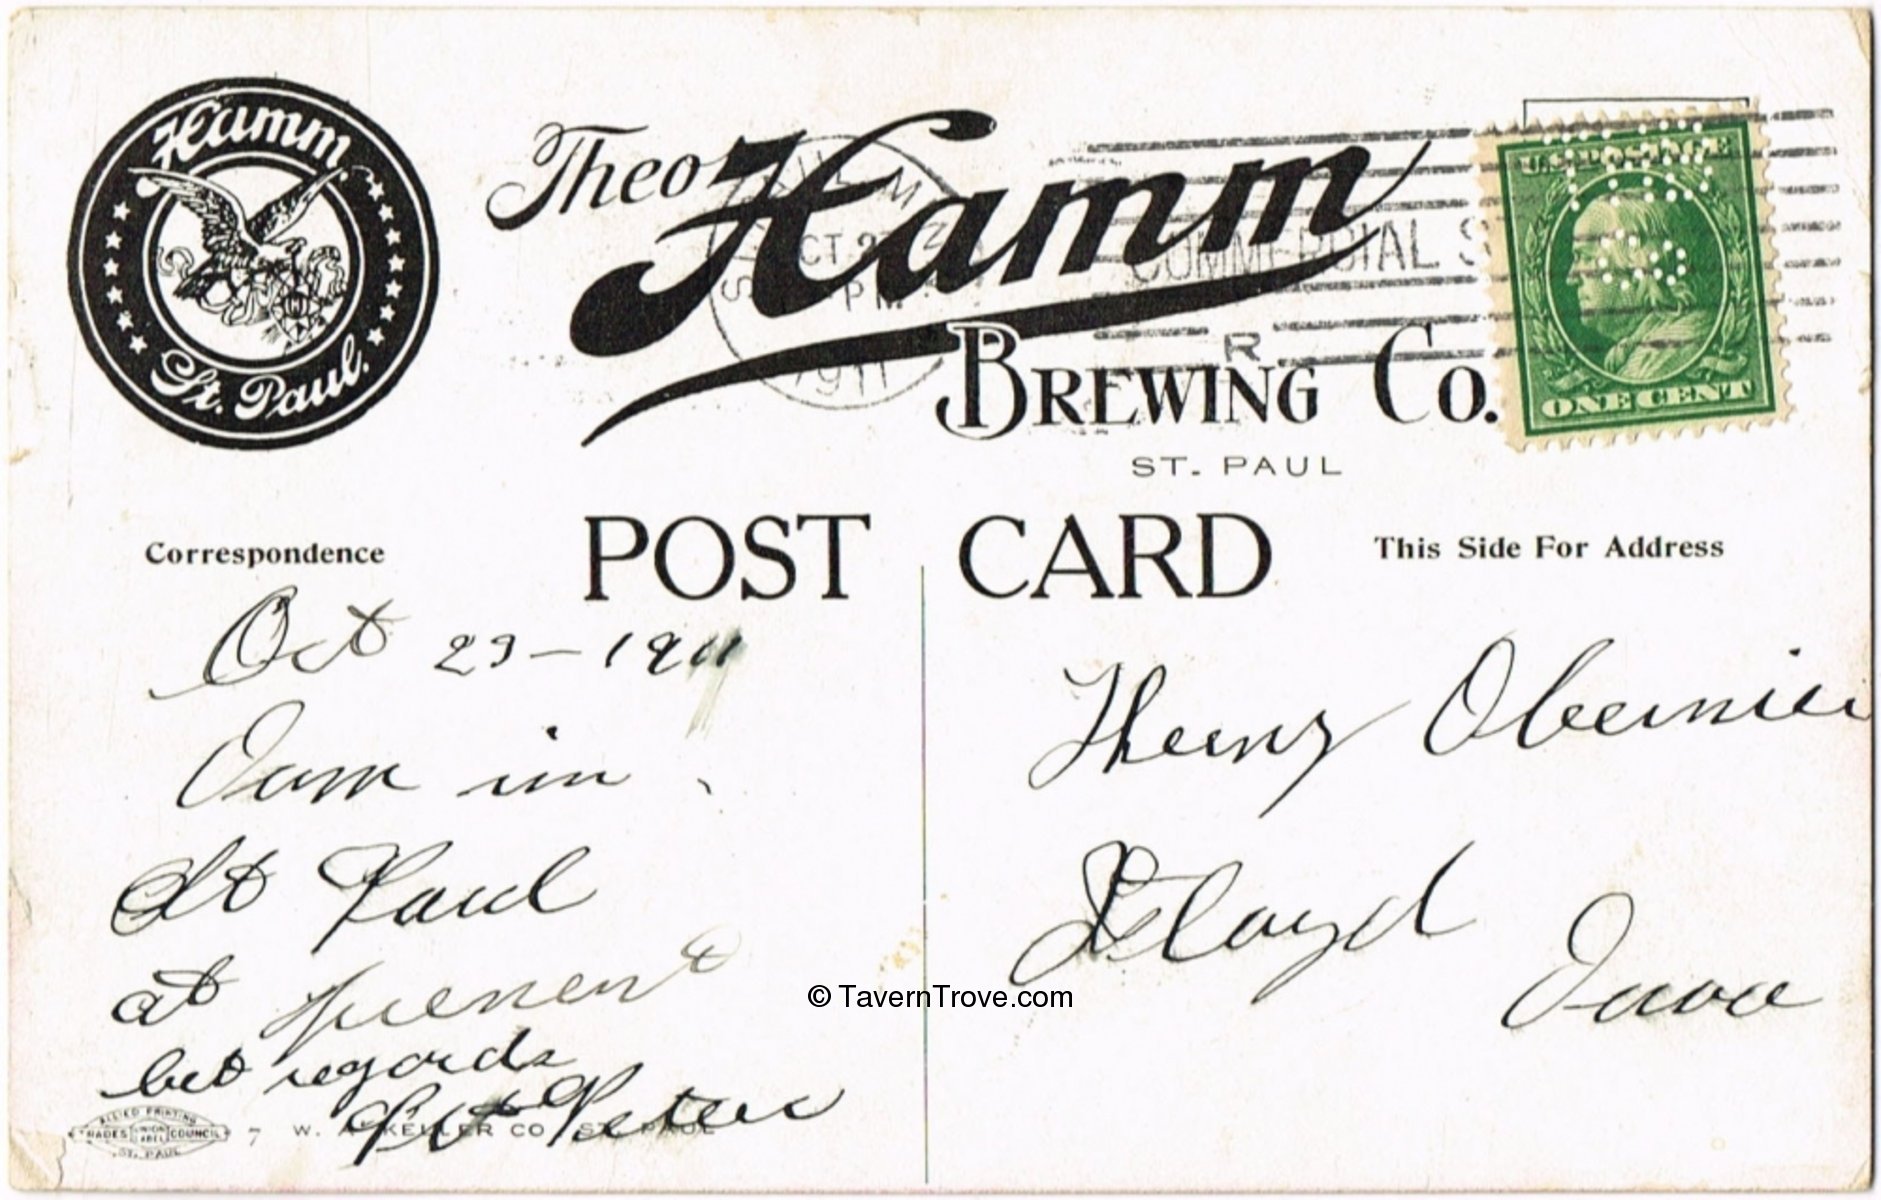 Hamm
St. Paul.
Theo Hamm
BREWING CO.
ST. PAUL
OCT 23
PM
1911
COMMERCIAL S
R
U.S. POSTAGE
ONE CENT
POST CARD
Correspondence
This Side For Address
Oct 23 - 1911
I am in
St Paul
at presend
bet regards
Peter
Henry Obermier
Floyd
Iowa
© TavernTrove.com
ALLIED PRINTING
TRADES UNION LABEL COUNCIL
ST. PAUL
7 W. A. KELLER CO ST. PAUL